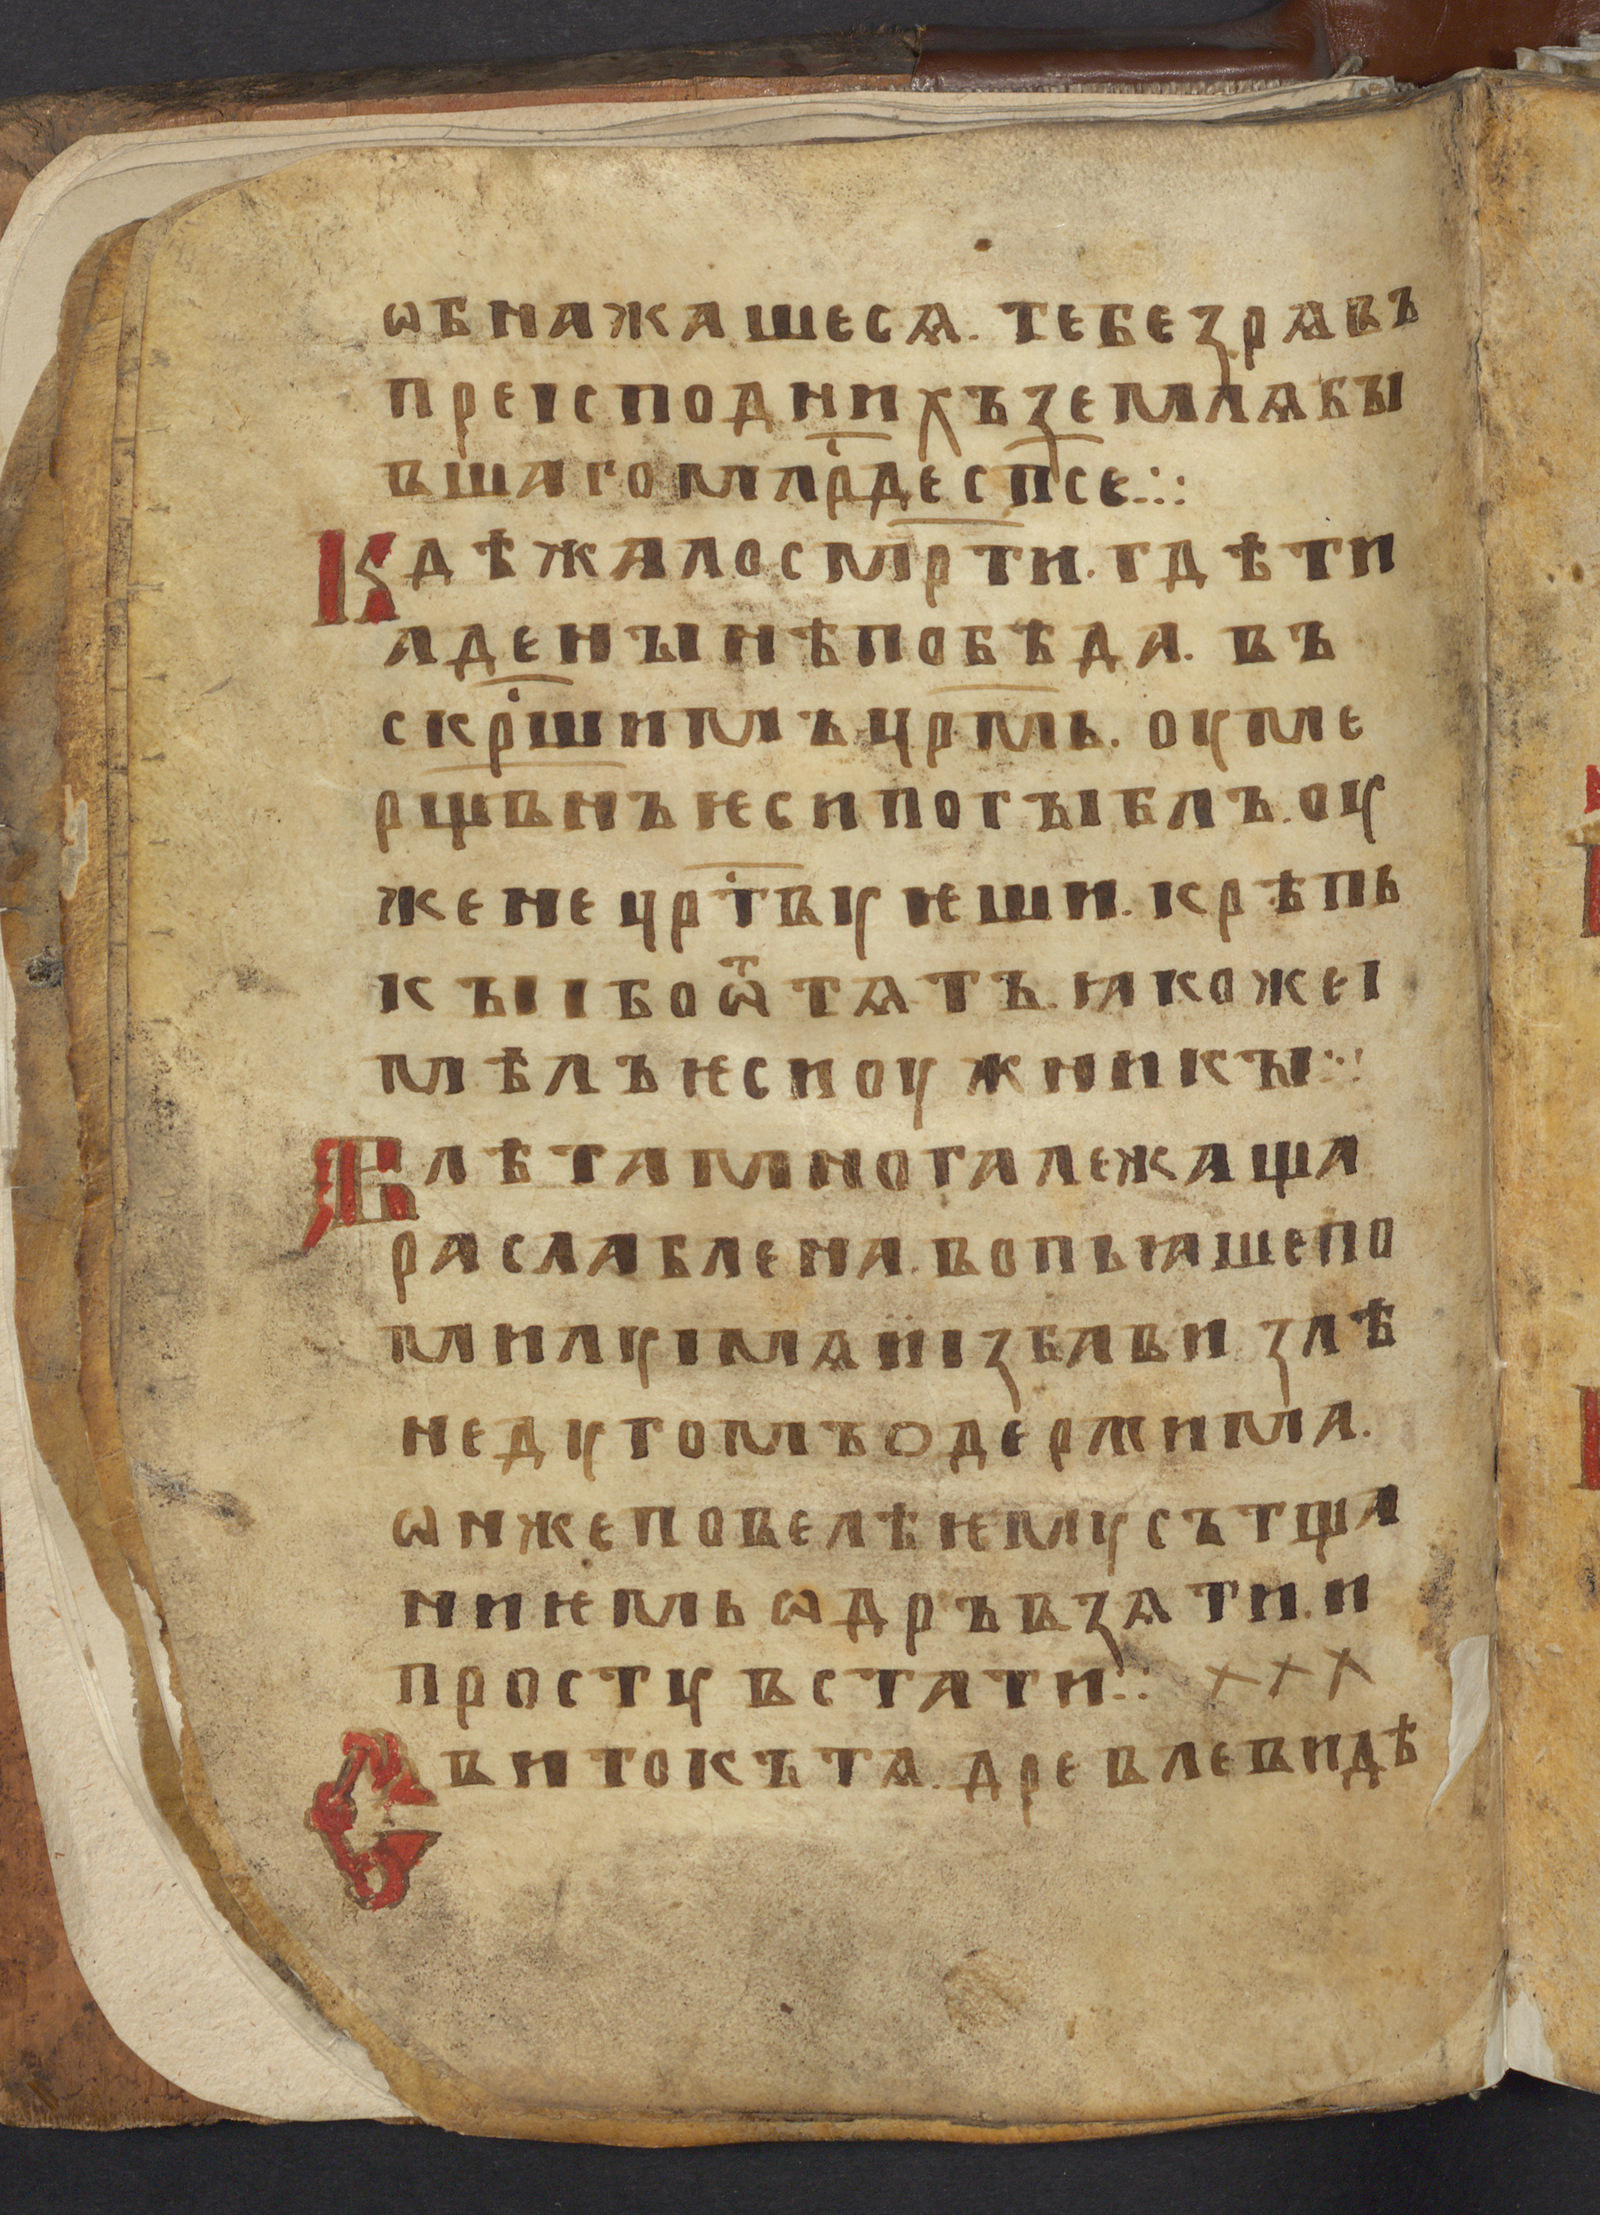 ѡбнажашесѧ. тебе зрѧ въ
преісподнихъ землѧ бы
вшаго млрⷭ҇де сп҃се ჻
Кдѣ жало см҃рти. гдѣ ти
аде нынѣ побѣда. въ
скрⷭ҇шимъ цр҃мь. оуме
рщвнъ ѥси погыблъ. оу
же не црⷭ҇твуѥши. крѣпь
кы і бо ѿтѧтъ. ꙗко же і
мѣлъ ѥси оужникы ჻
В лѣта многа лежаща
раслаблена. вопьꙗше по
милуі мѧ и ізбави злѣ
недугомъ одержима.
ѡн же повелѣ ѥму съ тща
ниѥмь ѡдръ взѧти. и
просту встати ჻ + + +
Свитокъ тѧ. древле видѣ